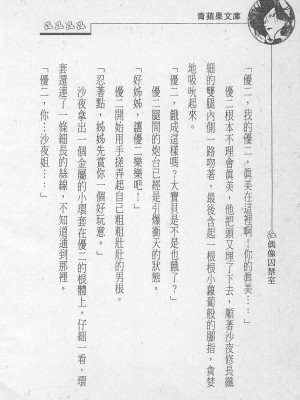 青蘋果文庫
偶像囚禁室
「優二，我的優二，真美在這裡啊！你的真美⋯⋯」
優二根本不理會真美，他把頭又埋了下去，順著沙夜修長纖
細的雙腿內側一路吻著，最後含起一根根小蘿蔔般的腳指，貪婪
地吸吮起來。
「優二，餓成這樣嗎？大寶貝是不是也餓了？」
優二腿間的炮台已經是引爆衝天的狀態。
「好姊姊，讓優二樂樂吧！」
優二開始用手搓弄起自己粗粗壯壯的男根。
「忍著點，姊姊先賞你一個好玩意。」
沙夜拿出一個金屬的小環套在優二的根體上，仔細一看，環
套還連了一條細長的絲線，不知道通到那裡。
「優二，你⋯沙夜姐⋯⋯」